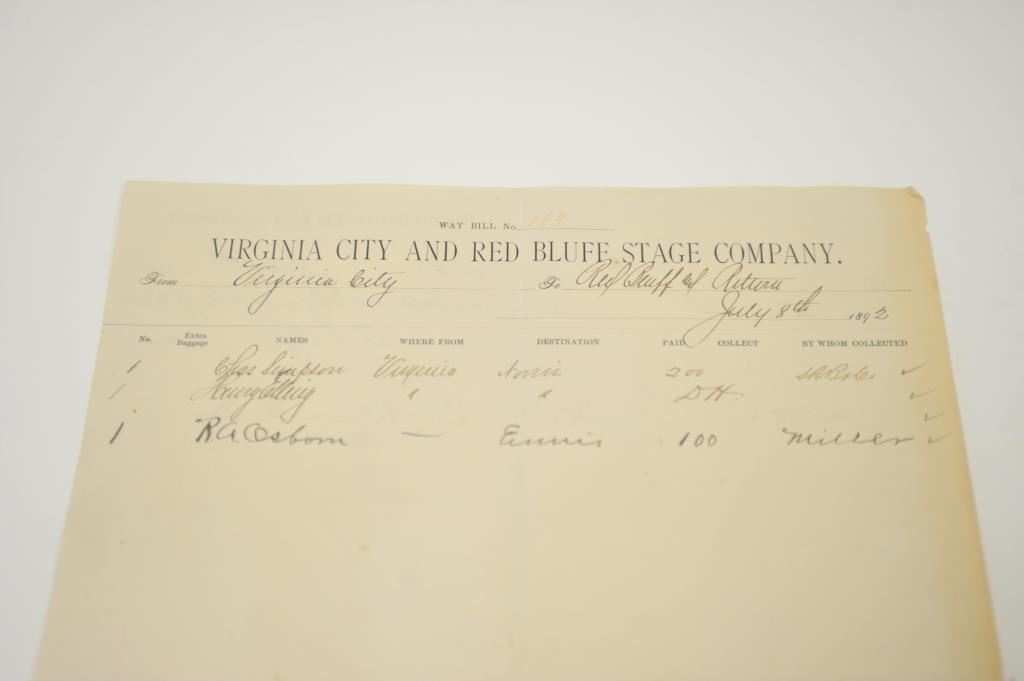 WAY BILL No.
VIRGINIA CITY AND RED BLUFF STAGE COMPANY.
From Virginia City To Red Bluff and Return
July 8th 1892
No. Extra Baggage NAMES WHERE FROM DESTINATION PAID COLLECT BY WHOM COLLECTED
1 Chas Simpson Virginia Norris 2 00 ✓
1 Harry Elling " " DH. ✓
✓
1 R A Osborn — Ennis 1 00 Miller ✓